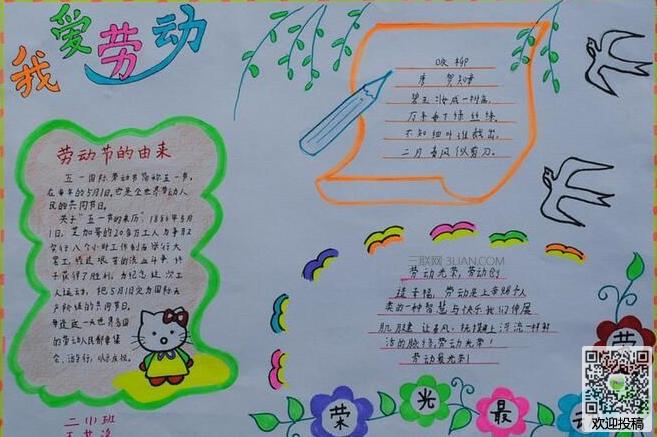 我爱劳动
劳动节的由来
五一国际劳动节简称五一节,
在每年的5月1日。它是全世界劳动人
民的共同节日。
关于“五一节的来历”:1886年5月
1日,芝加哥的20多万工人为争取
实行八个小时工作制而举行大
罢工,经过艰苦的流血斗争,终
于获得了胜利。为纪念这次工
人运动,把5月1日定为国际无
产阶级的共同节日。
每逢这一天世界各国
的劳动人民都要集
会、游行,以示庆祝。
二(1)班
咏柳
唐 贺知章
碧玉妆成一树高,
万条垂下绿丝绦。
不知细叶谁裁出,
二月春风似剪刀。
三联网 3LIAN.COM
劳动光荣,劳动创
造幸福,劳动是上帝赐予人
类的一种智慧与快乐,我们伸展
肌肤,让春风
活的脉络,劳动光荣!
劳动最光荣!
荣光最劳
欢迎投稿